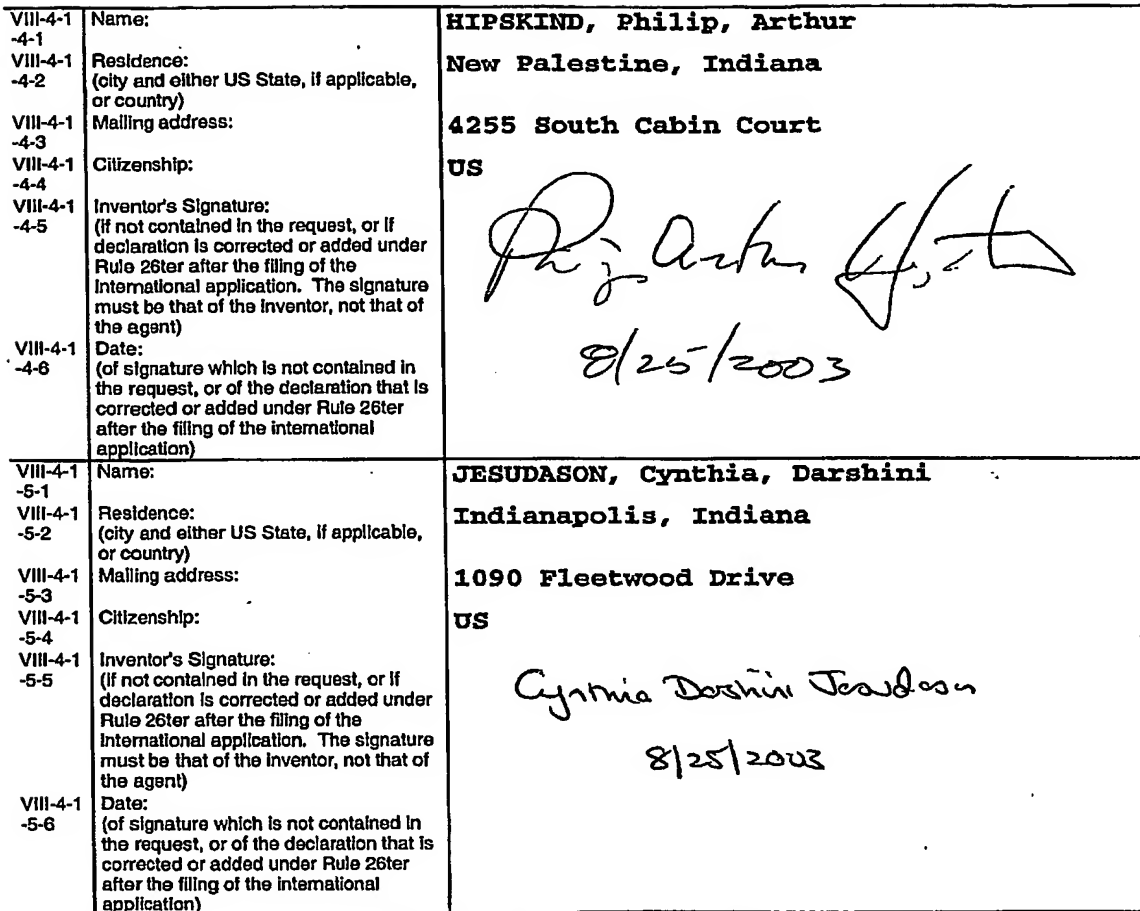 VIII-4-1 Name: HIPSKIND, Philip, Arthur
-4-1
VIII-4-1 Residence: New Palestine, Indiana
-4-2 (city and either US State, if applicable,
or country)
VIII-4-1 Mailing address: 4255 South Cabin Court
-4-3
VIII-4-1 Citizenship: US
-4-4
VIII-4-1 Inventor's Signature:
-4-5 (if not contained in the request, or if
declaration is corrected or added under
Rule 26ter after the filing of the
international application. The signature
must be that of the inventor, not that of
the agent)
VIII-4-1 Date: 8/25/2003
-4-6 (of signature which is not contained in
the request, or of the declaration that is
corrected or added under Rule 26ter
after the filing of the international
application)
VIII-4-1 Name: JESUDASON, Cynthia, Darshini
-5-1
VIII-4-1 Residence: Indianapolis, Indiana
-5-2 (city and either US State, if applicable,
or country)
VIII-4-1 Mailing address: 1090 Fleetwood Drive
-5-3
VIII-4-1 Citizenship: US
-5-4
VIII-4-1 Inventor's Signature:
-5-5 (if not contained in the request, or if
declaration is corrected or added under Cynthia Darshini Jesudason
Rule 26ter after the filing of the
international application. The signature
must be that of the inventor, not that of 8/25/2003
the agent)
VIII-4-1 Date:
-5-6 (of signature which is not contained in
the request, or of the declaration that is
corrected or added under Rule 26ter
after the filing of the international
application)